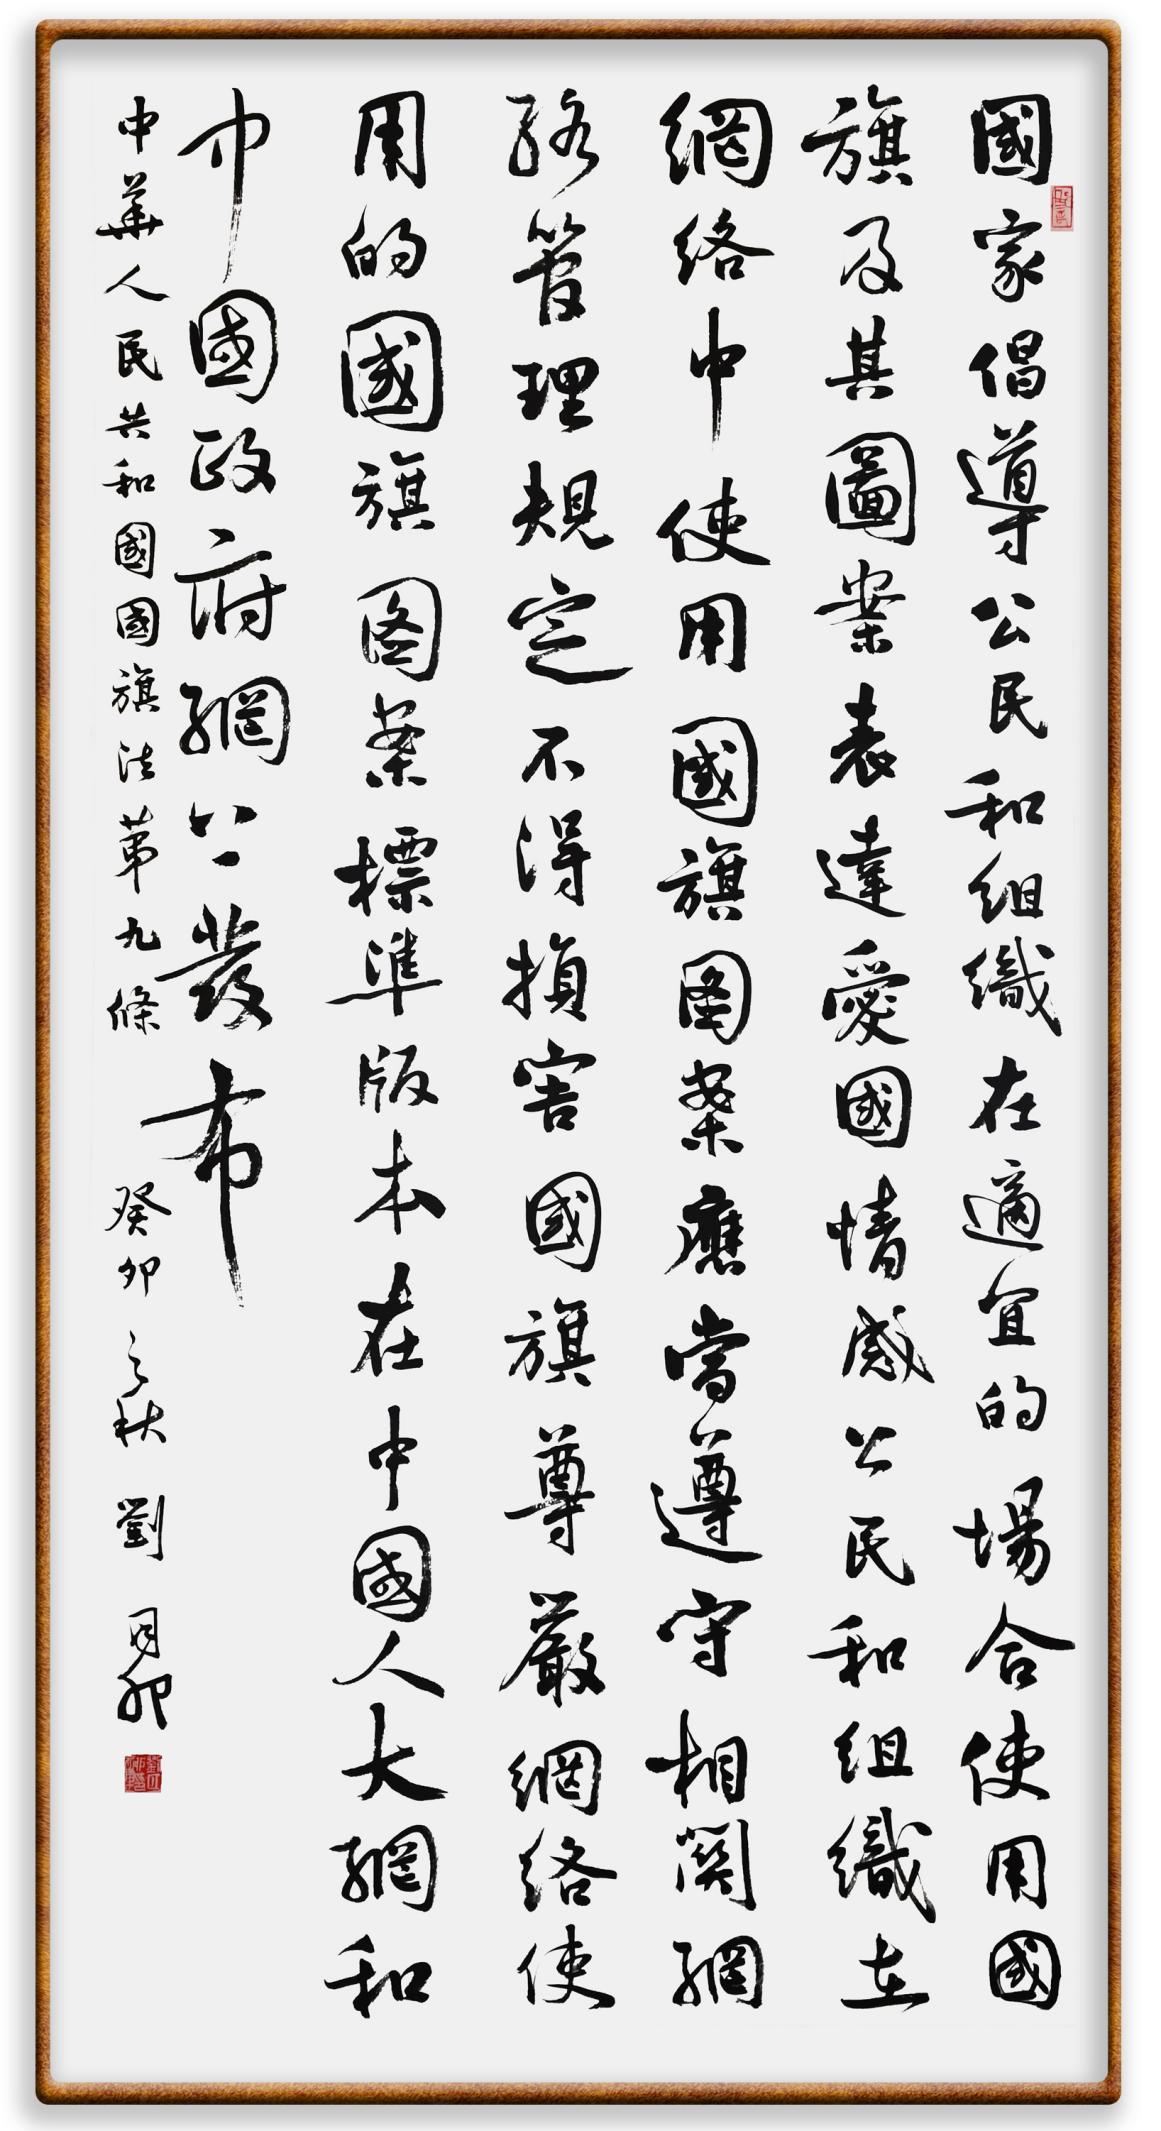 國家倡導公民和組織在適宜的場合使用國
旗及其圖案表達愛國情感公民和組織在
網絡中使用國旗图案應當遵守相関網
絡管理規定不得損害國旗尊嚴網絡使
用的國旗图案標準版本在中國人大網和
中國政府網公發布
中華人民共和國國旗法第九條
癸卯之秋劉